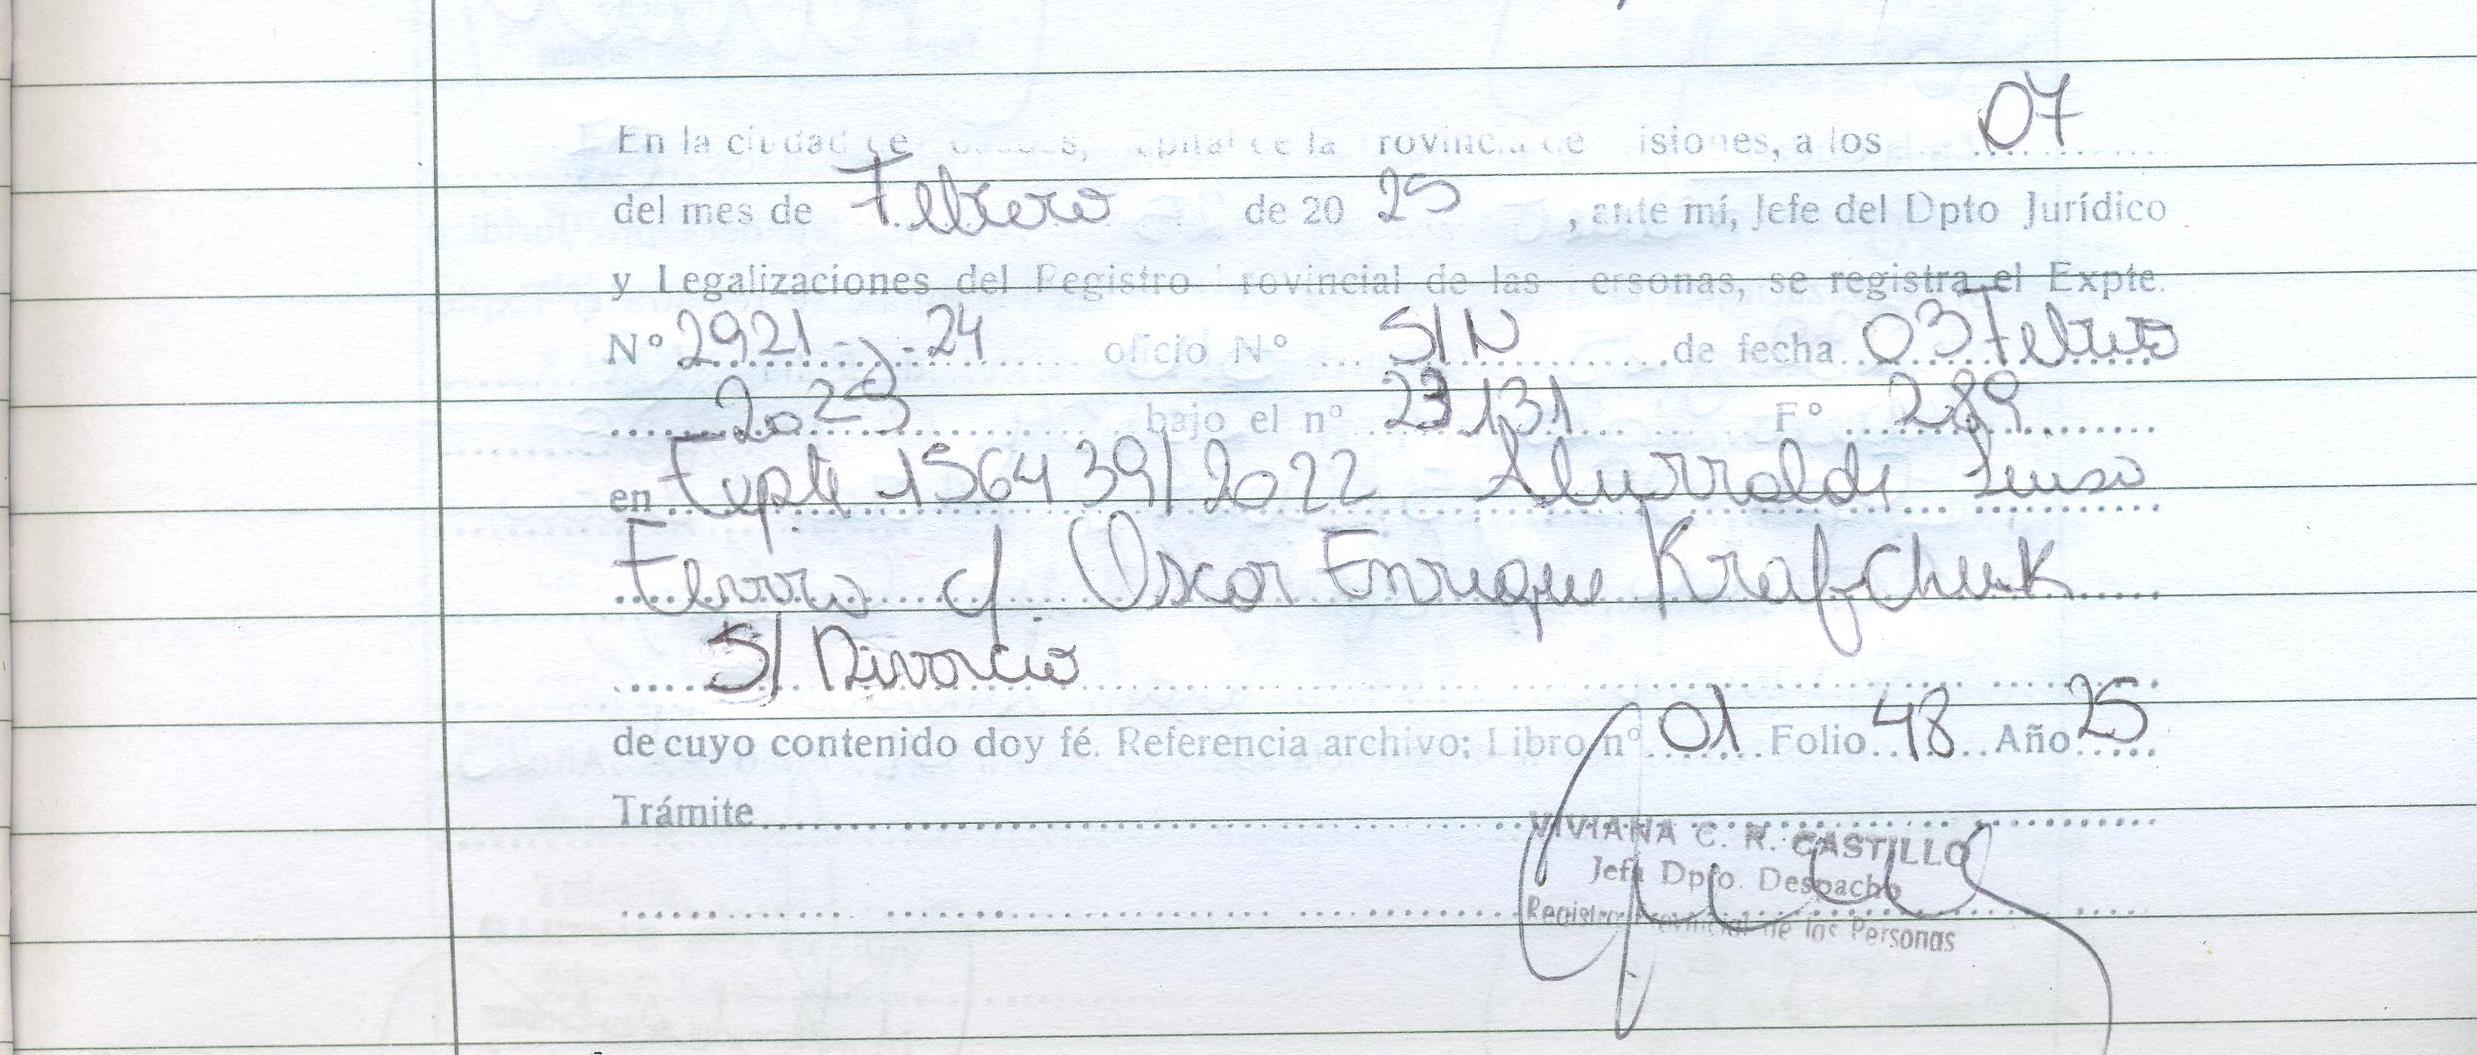 En la ciudad de Posadas, capital de la Provincia de Misiones, a los 07
del mes de Febrero de 20 25 , ante mí, Jefe del Dpto Jurídico
y Legalizaciones del Registro Provincial de las Personas, se registra el Expte.
N° 2921- -24 oficio N° S/N de fecha 03 Febrero
2025 bajo el n° 23131 F° 289
en Expte 156439/2022 Alurralde
c/ Oscar Enrique Krafchuk
S/ Divorcio
de cuyo contenido doy fé. Referencia archivo: Libro n° 01 Folio 48 Año 25
Trámite
VIVIANA C. R. CASTILLO
Jefa Dpto. Despacho
Registro Provincial de las Personas